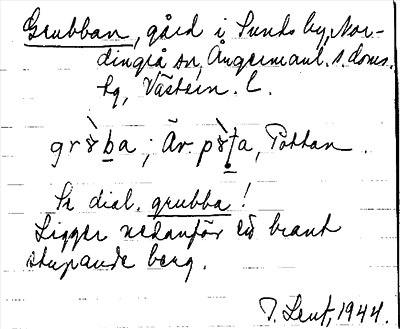 Grubban, gård i Sunds by, Nor-
dingrå sn, Ångermanl. s. doms.
hg, Västern. l.
grs̀ba; Äv. ps̀ta, Pottan.
Se dial. grubba!
Ligger nedanför en brant
stupande berg.
T. Lent, 1944.